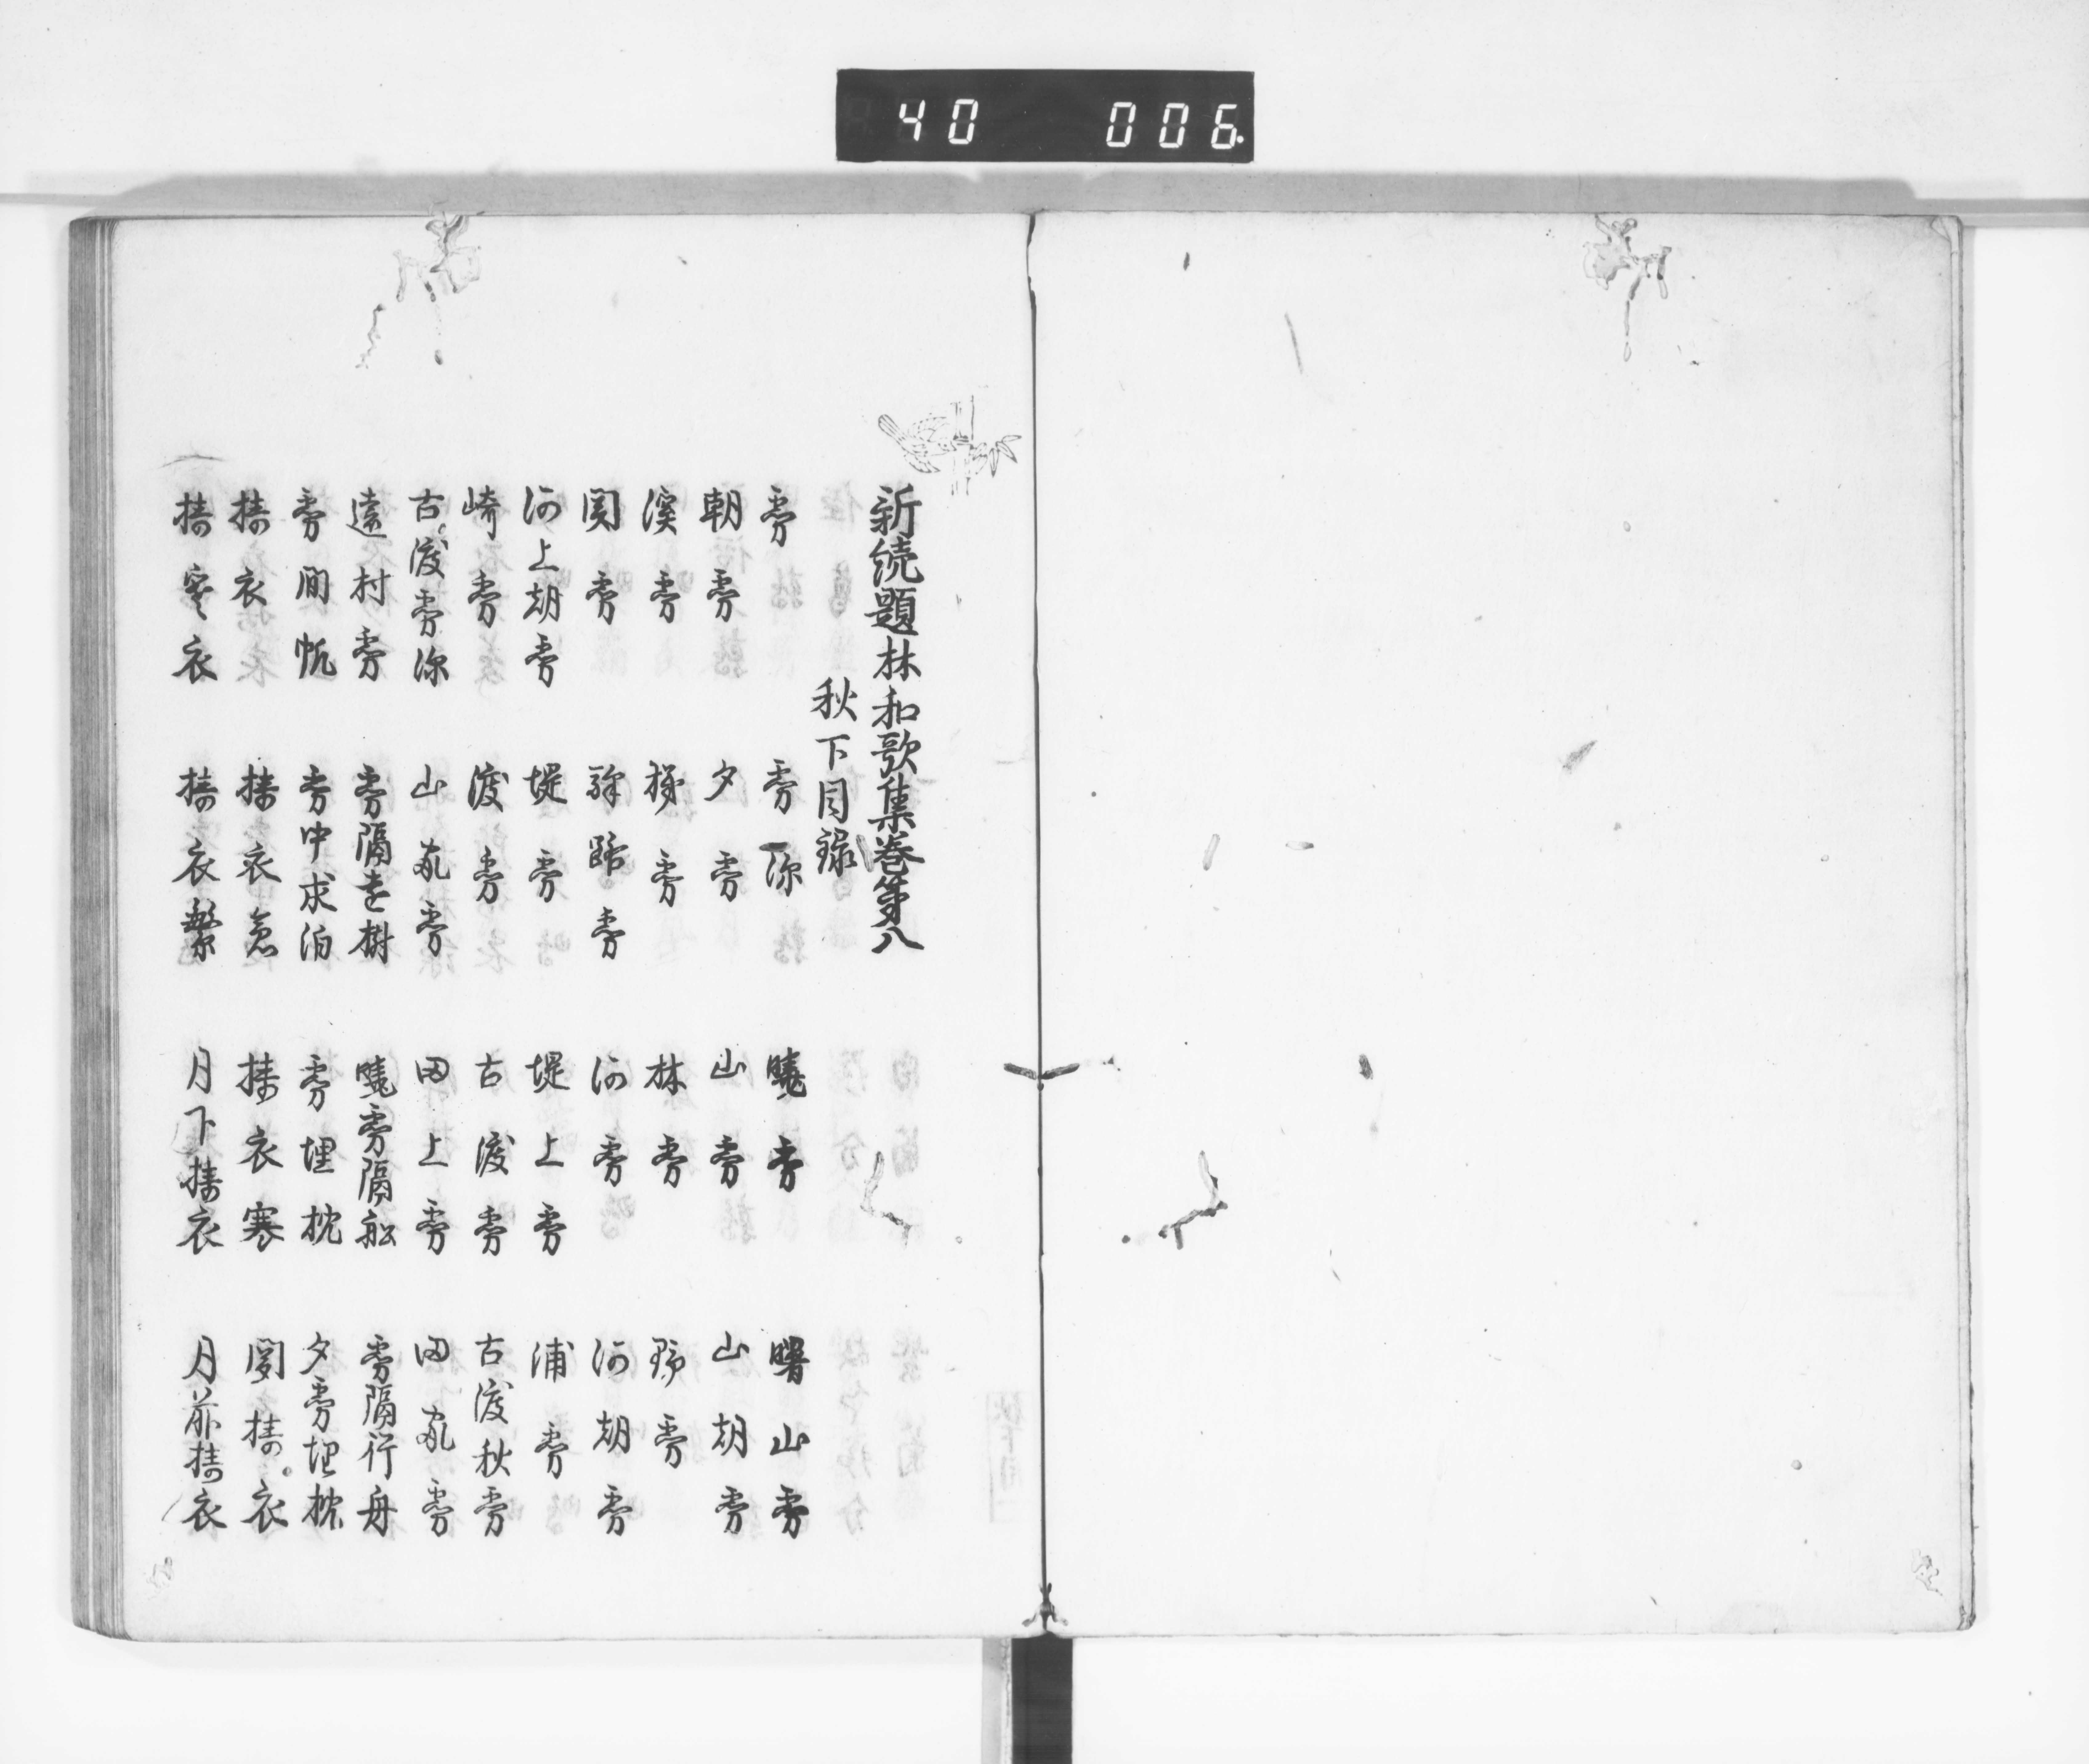 40 006
新続題林和歌集巻第八
秋下目録
霧 霧深 曉霧 曙山霧
朝霧 夕霧 山霧 山朝霧
溪霧 梯霧 林霧 野霧
関霧 霧 河霧 河朝霧
河上朝霧 堤霧 堤上霧 浦霧
崎霧 渡霧 古渡霧 古渡秋霧
古渡霧深 山家霧 田上霧 田家霧
遠村霧 霧隔遠樹 曉霧隔舩 霧隔行舟
霧間帆 霧中求泊 霧埋枕 夕霧埋枕
擣衣 擣衣急 擣衣寒 聞擣衣
擣寒衣 擣衣繁 月下擣衣 月前擣衣